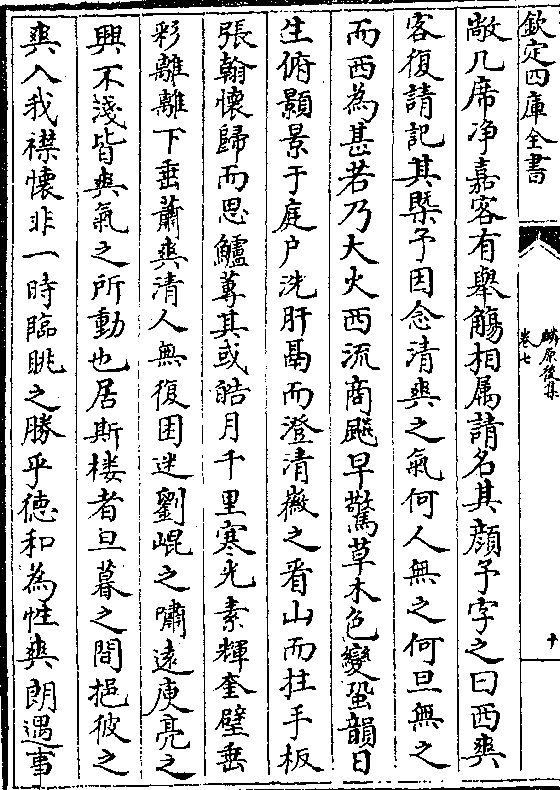 欽定四庫全書
麟原後集
卷七
十
敞几席净嘉客有舉觴相属請名其顔予字之曰西爽
客復請記其槩予因念清爽之氣何人無之何旦無之
而西為甚若乃大火西流商飈早驚草木色變蛩韻日
生俯顥景于庭户洗肝鬲而澄清徽之看山而拄手板
張翰懷歸而思鱸蓴其或皓月千里寒光素輝奎壁垂
彩離離下垂蕭爽清人無復困迷劉崐之嘯遠庾亮之
興不淺皆爽氣之所動也居斯楼者旦暮之間挹彼之
爽入我襟懷非一時臨眺之勝乎德和為性爽朗遇事